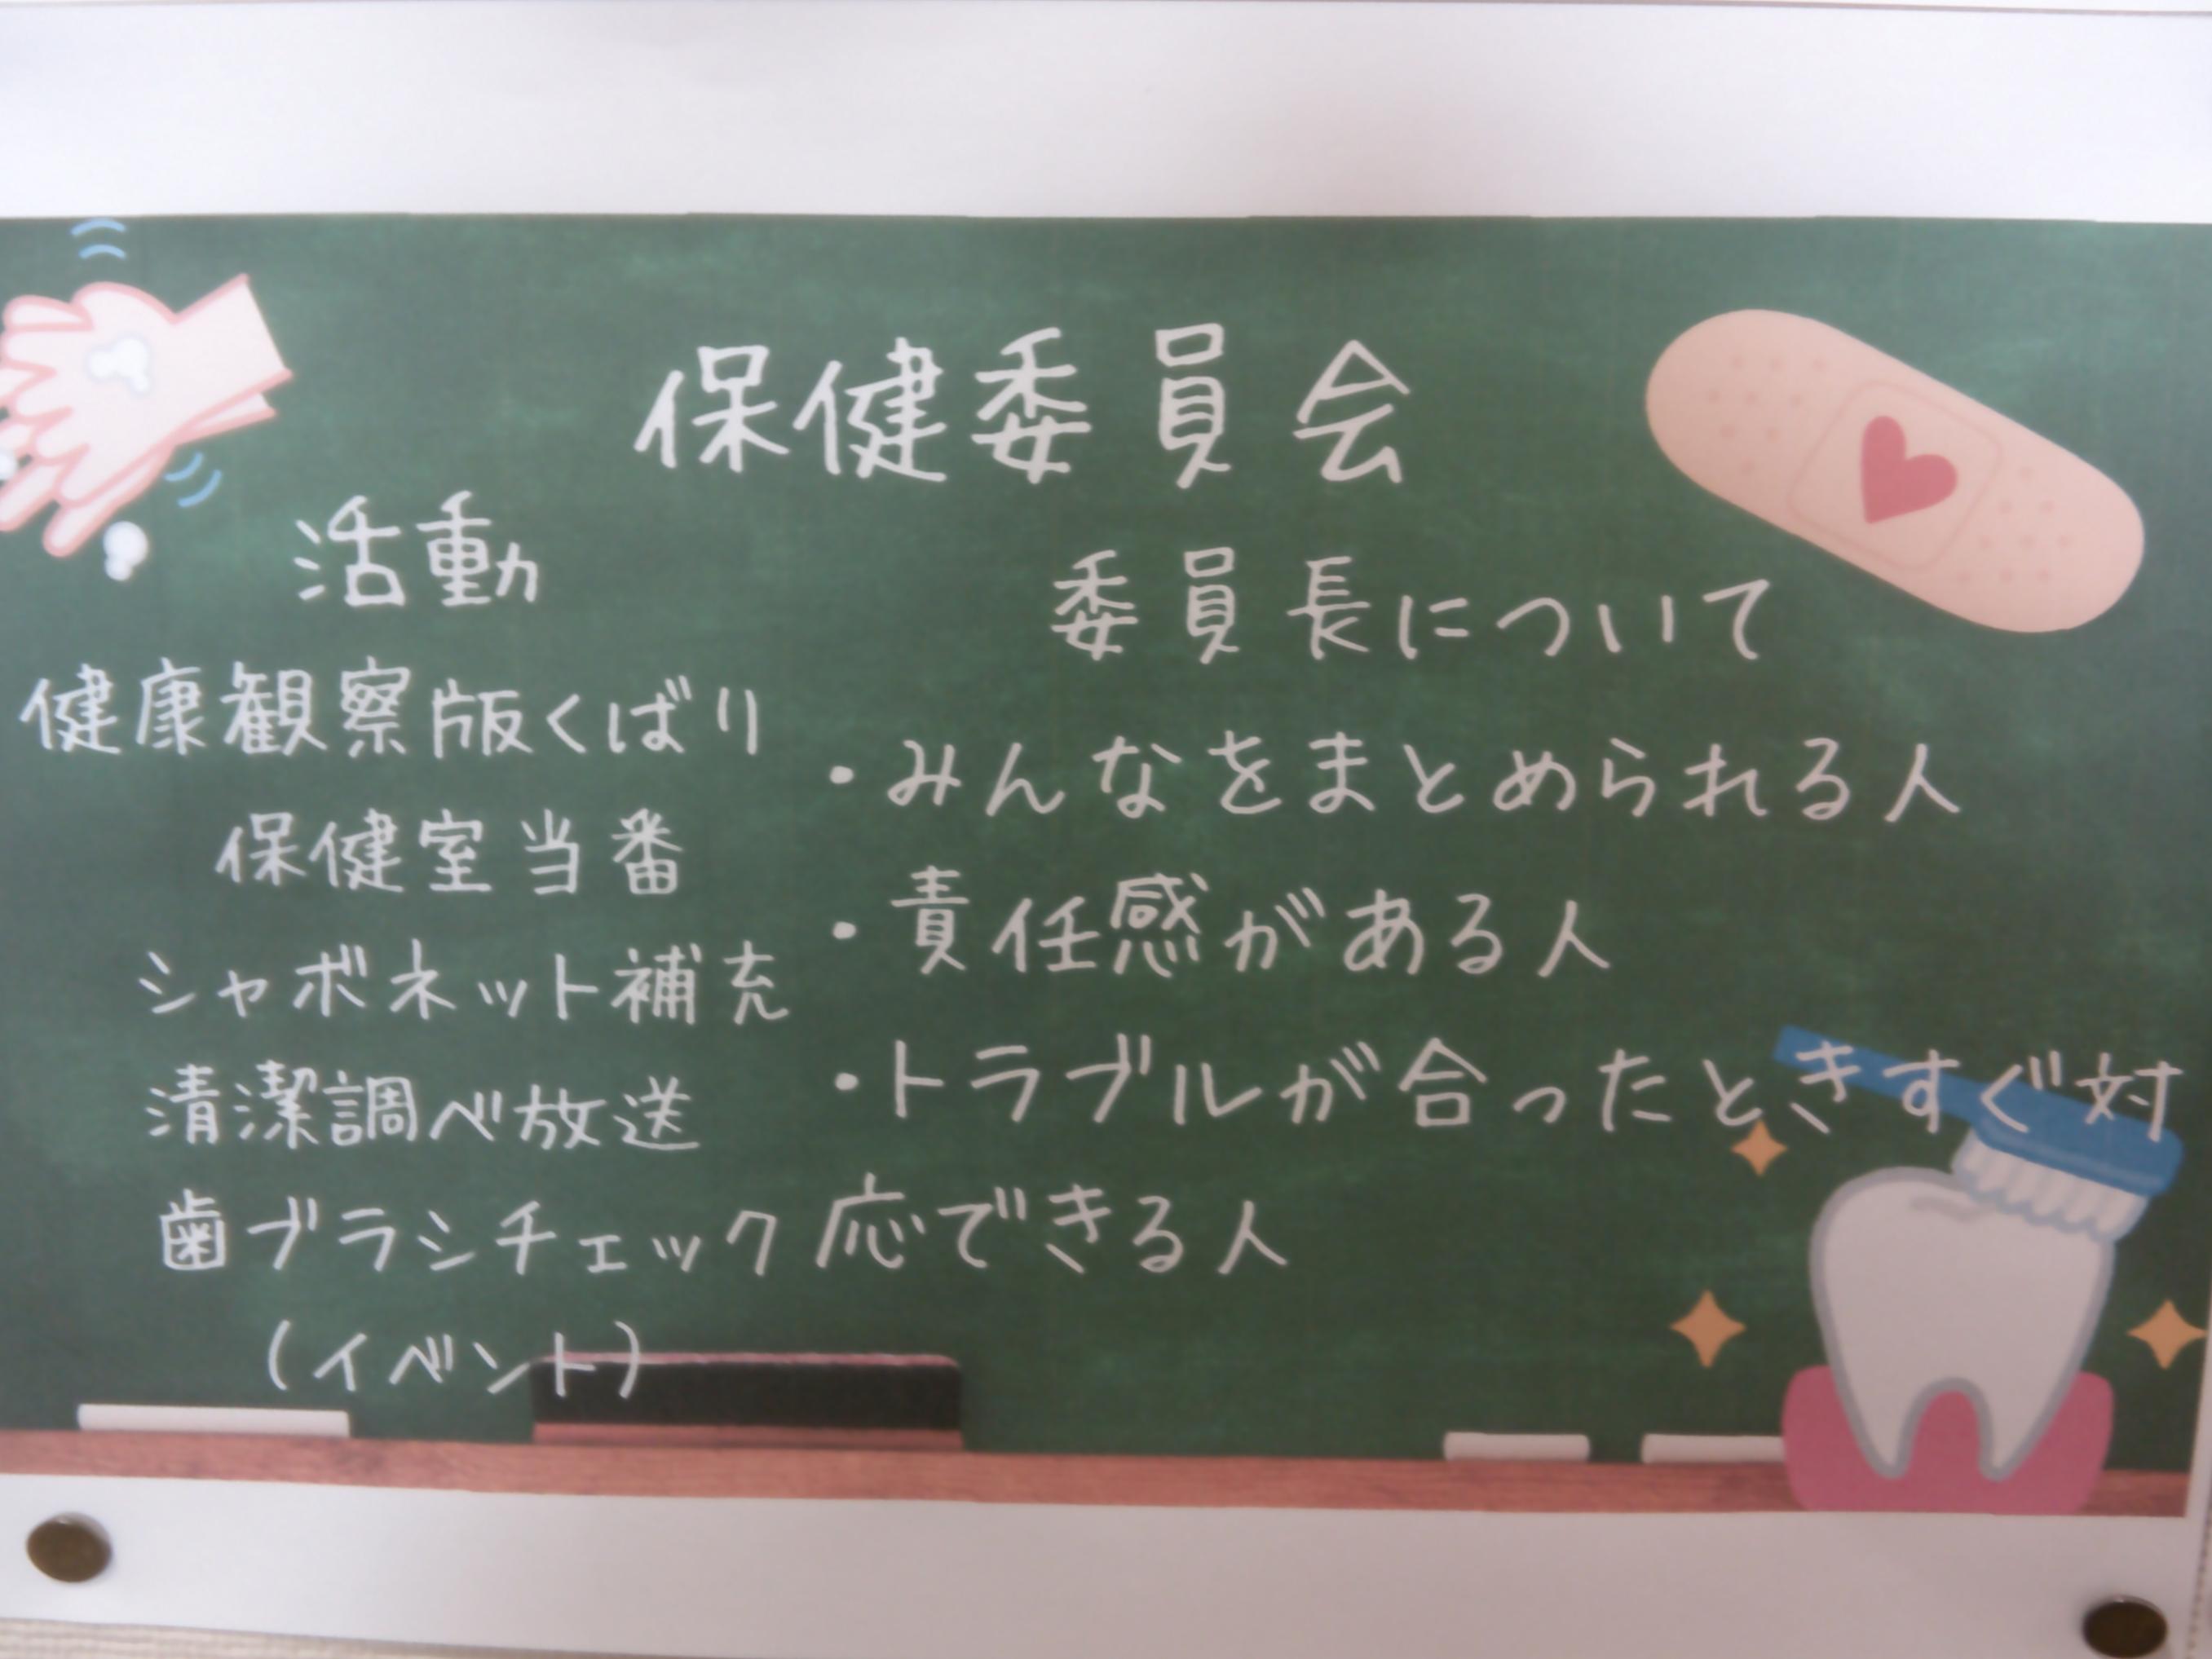 保健委員会
活動
健康観察版くばり
保健室当番
シャボネット補充
清潔調べ放送
歯ブラシチェック
(イベント)
委員長について
・みんなをまとめられる人
・責任感がある人
・トラブルが合ったときすぐ対
応できる人